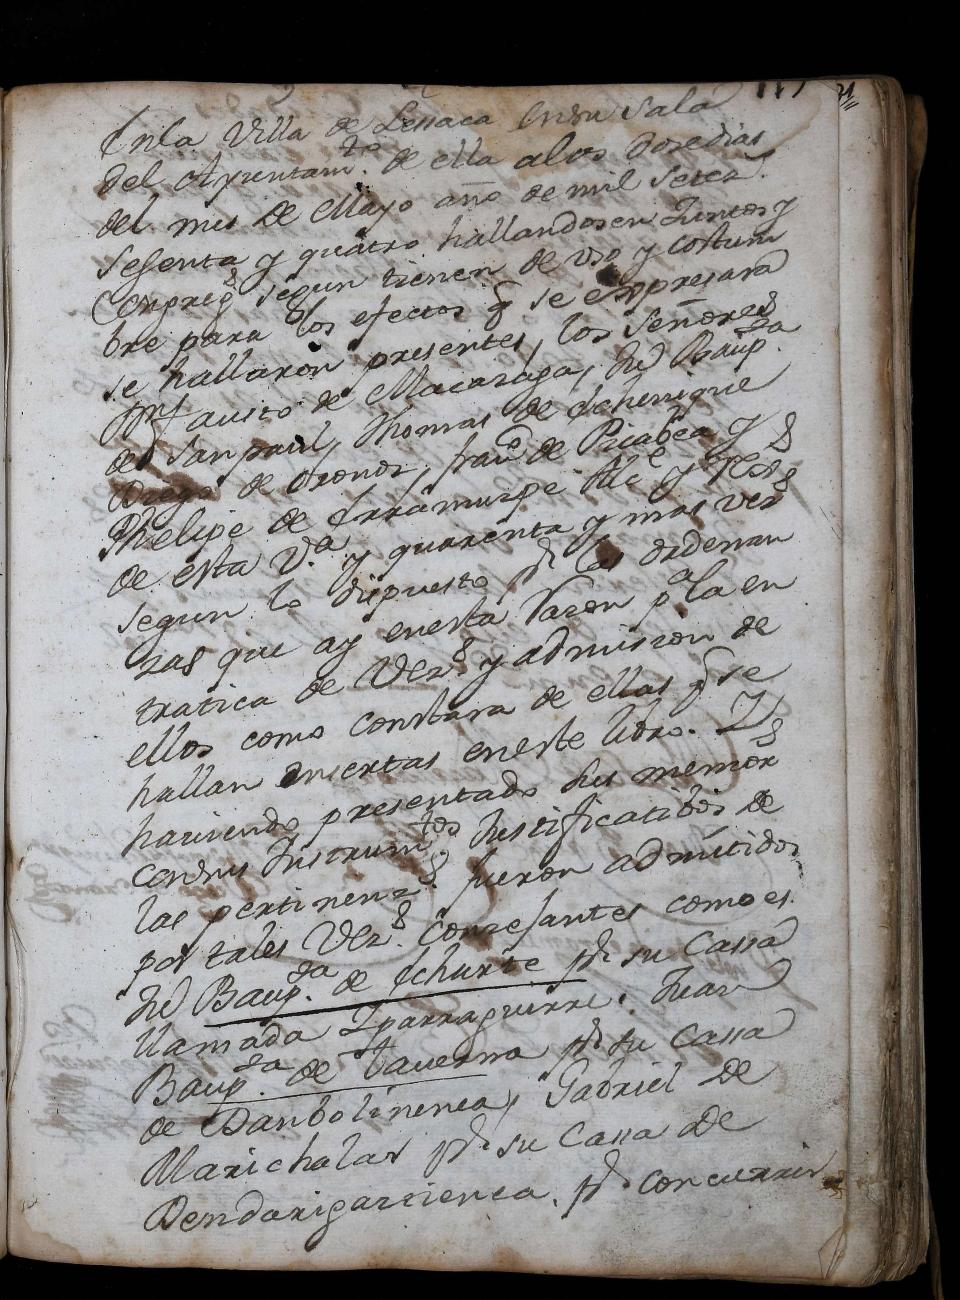 Enla Villa de Lessaca Ensu Sala
del Ayuntam.to de ella alos Doze dias
del mes de Mayo año de mil Setez.s
Sesenta y quatro hallandosen Juntos y
Congreg.s segun tienen de uso y costum
bre para los efectos q se expresara
se hallaron presentes, los Señores
Fausto de Macazaga, Ju Baup.ta
de San paul, Thomas de Echenique
Diego de oronoz, fran.co de Picabea y
Phelipe de Irramurpe Alc.e y Reg.s
de esta V.a y quarenta y mas vez.s
segun lo dispuesto p.r las ordenan
zas que ay enesta razon p.a la en
tratica de vez.s y admision de
ellos como constara de ellas q se
hallan insertas eneste libro. Y
haviendo presentado sus memor.s
consus Instrum.tos Justificatibos de
las pertinenz.s fueron admitidos
por tales vez.s Conzesantes como es.
Ju Baup.ta de Echurte p.r su Cassa
llamada Yparraguirre. Juan
Baup.ta de Taverna p.r su Cassa
de Danbolinenea, Gabriel de
Marichalar p.r su Cassa de
Dendarigarcienea. p.r concurrir